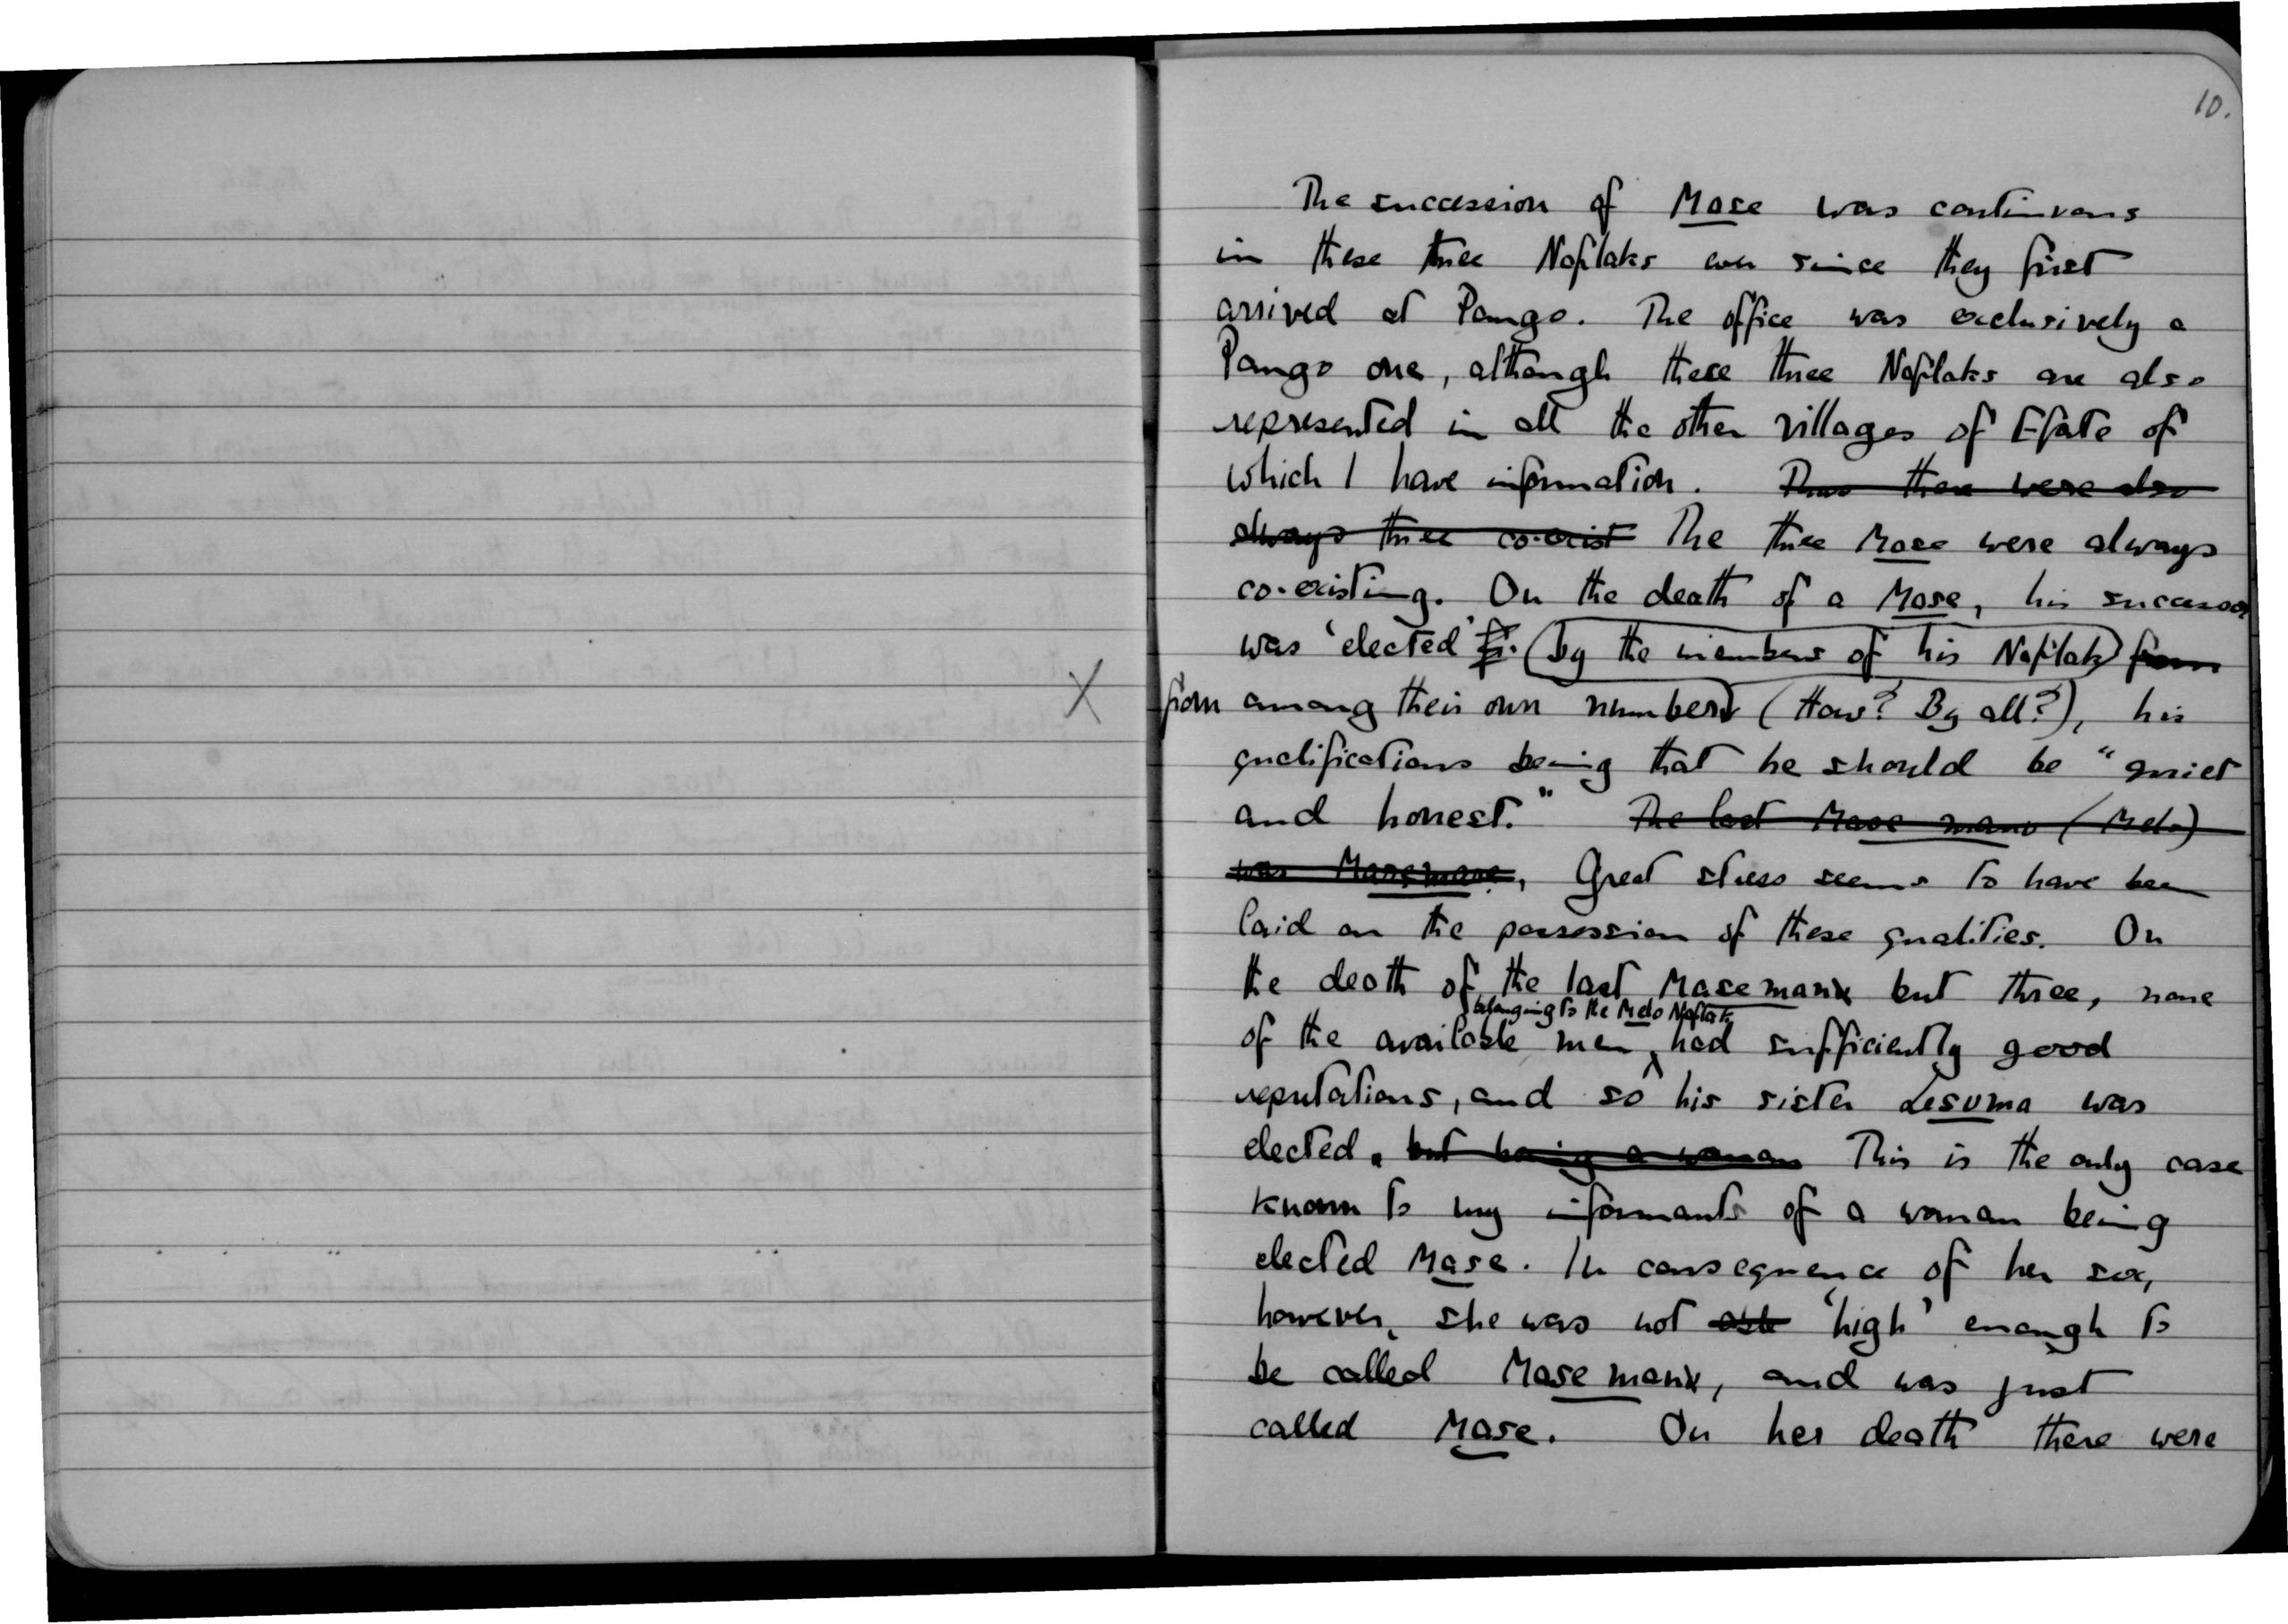 10.
The succession of Mase was continuous
in these three Naflaks ever since they first
arrived at Pango. The office was exclusively a
Pango one, although these three Naflaks are also
represented in all the other villages of Efate of
which I have information. Thus there were also
always three co-exist The three Mase were always
co-existing. On the death of a Mase, his successor
X
was 'elected' fr. (by the members of his Naflak) from
from among their own numbers (How? By all?), his
qualifications being that he should be "quiet
and honest." The last Mase manu (Melo)
was Masemanu, Great stress seems to have been
laid on the possession of these qualities. On
the death of the last Masemanu but three, none
belonging to the Melo Naflak
of the available men had sufficiently good
reputations, and so his sister Lesuma was
elected. but being a woman This is the only case
known to my informants of a woman being
elected Mase. In consequence of her sex,
however, she was not able 'high' enough to
be called Mase manu, and was just
called Mase. On her death there were